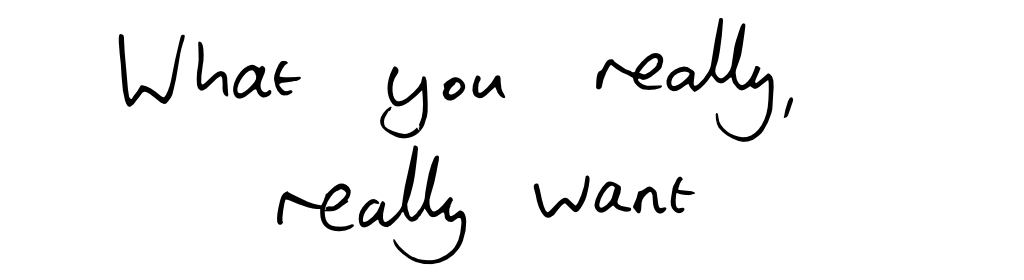 What you really,
really want